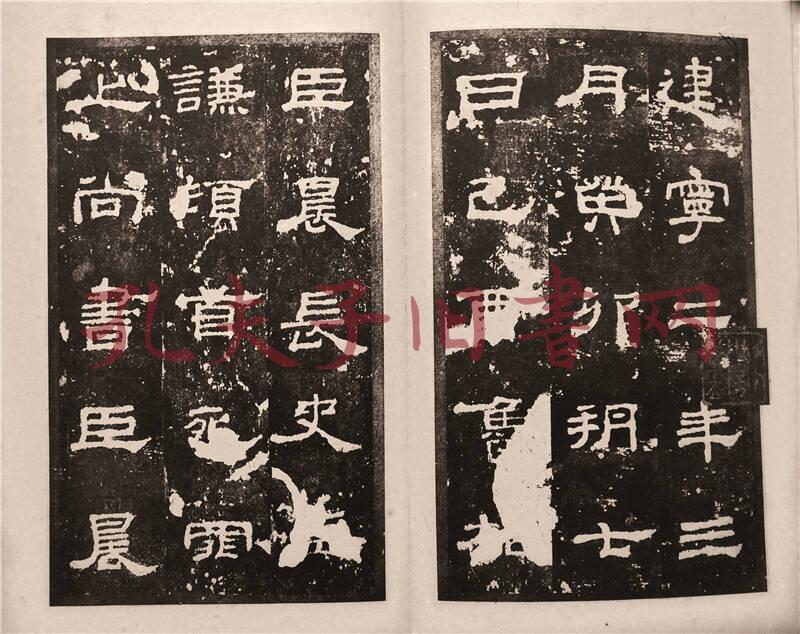 建寧二年三
月癸卯朔七
日己酉魯相
臣晨長史臣
謙頓首死罪
上尚書臣晨
孔夫子旧书网